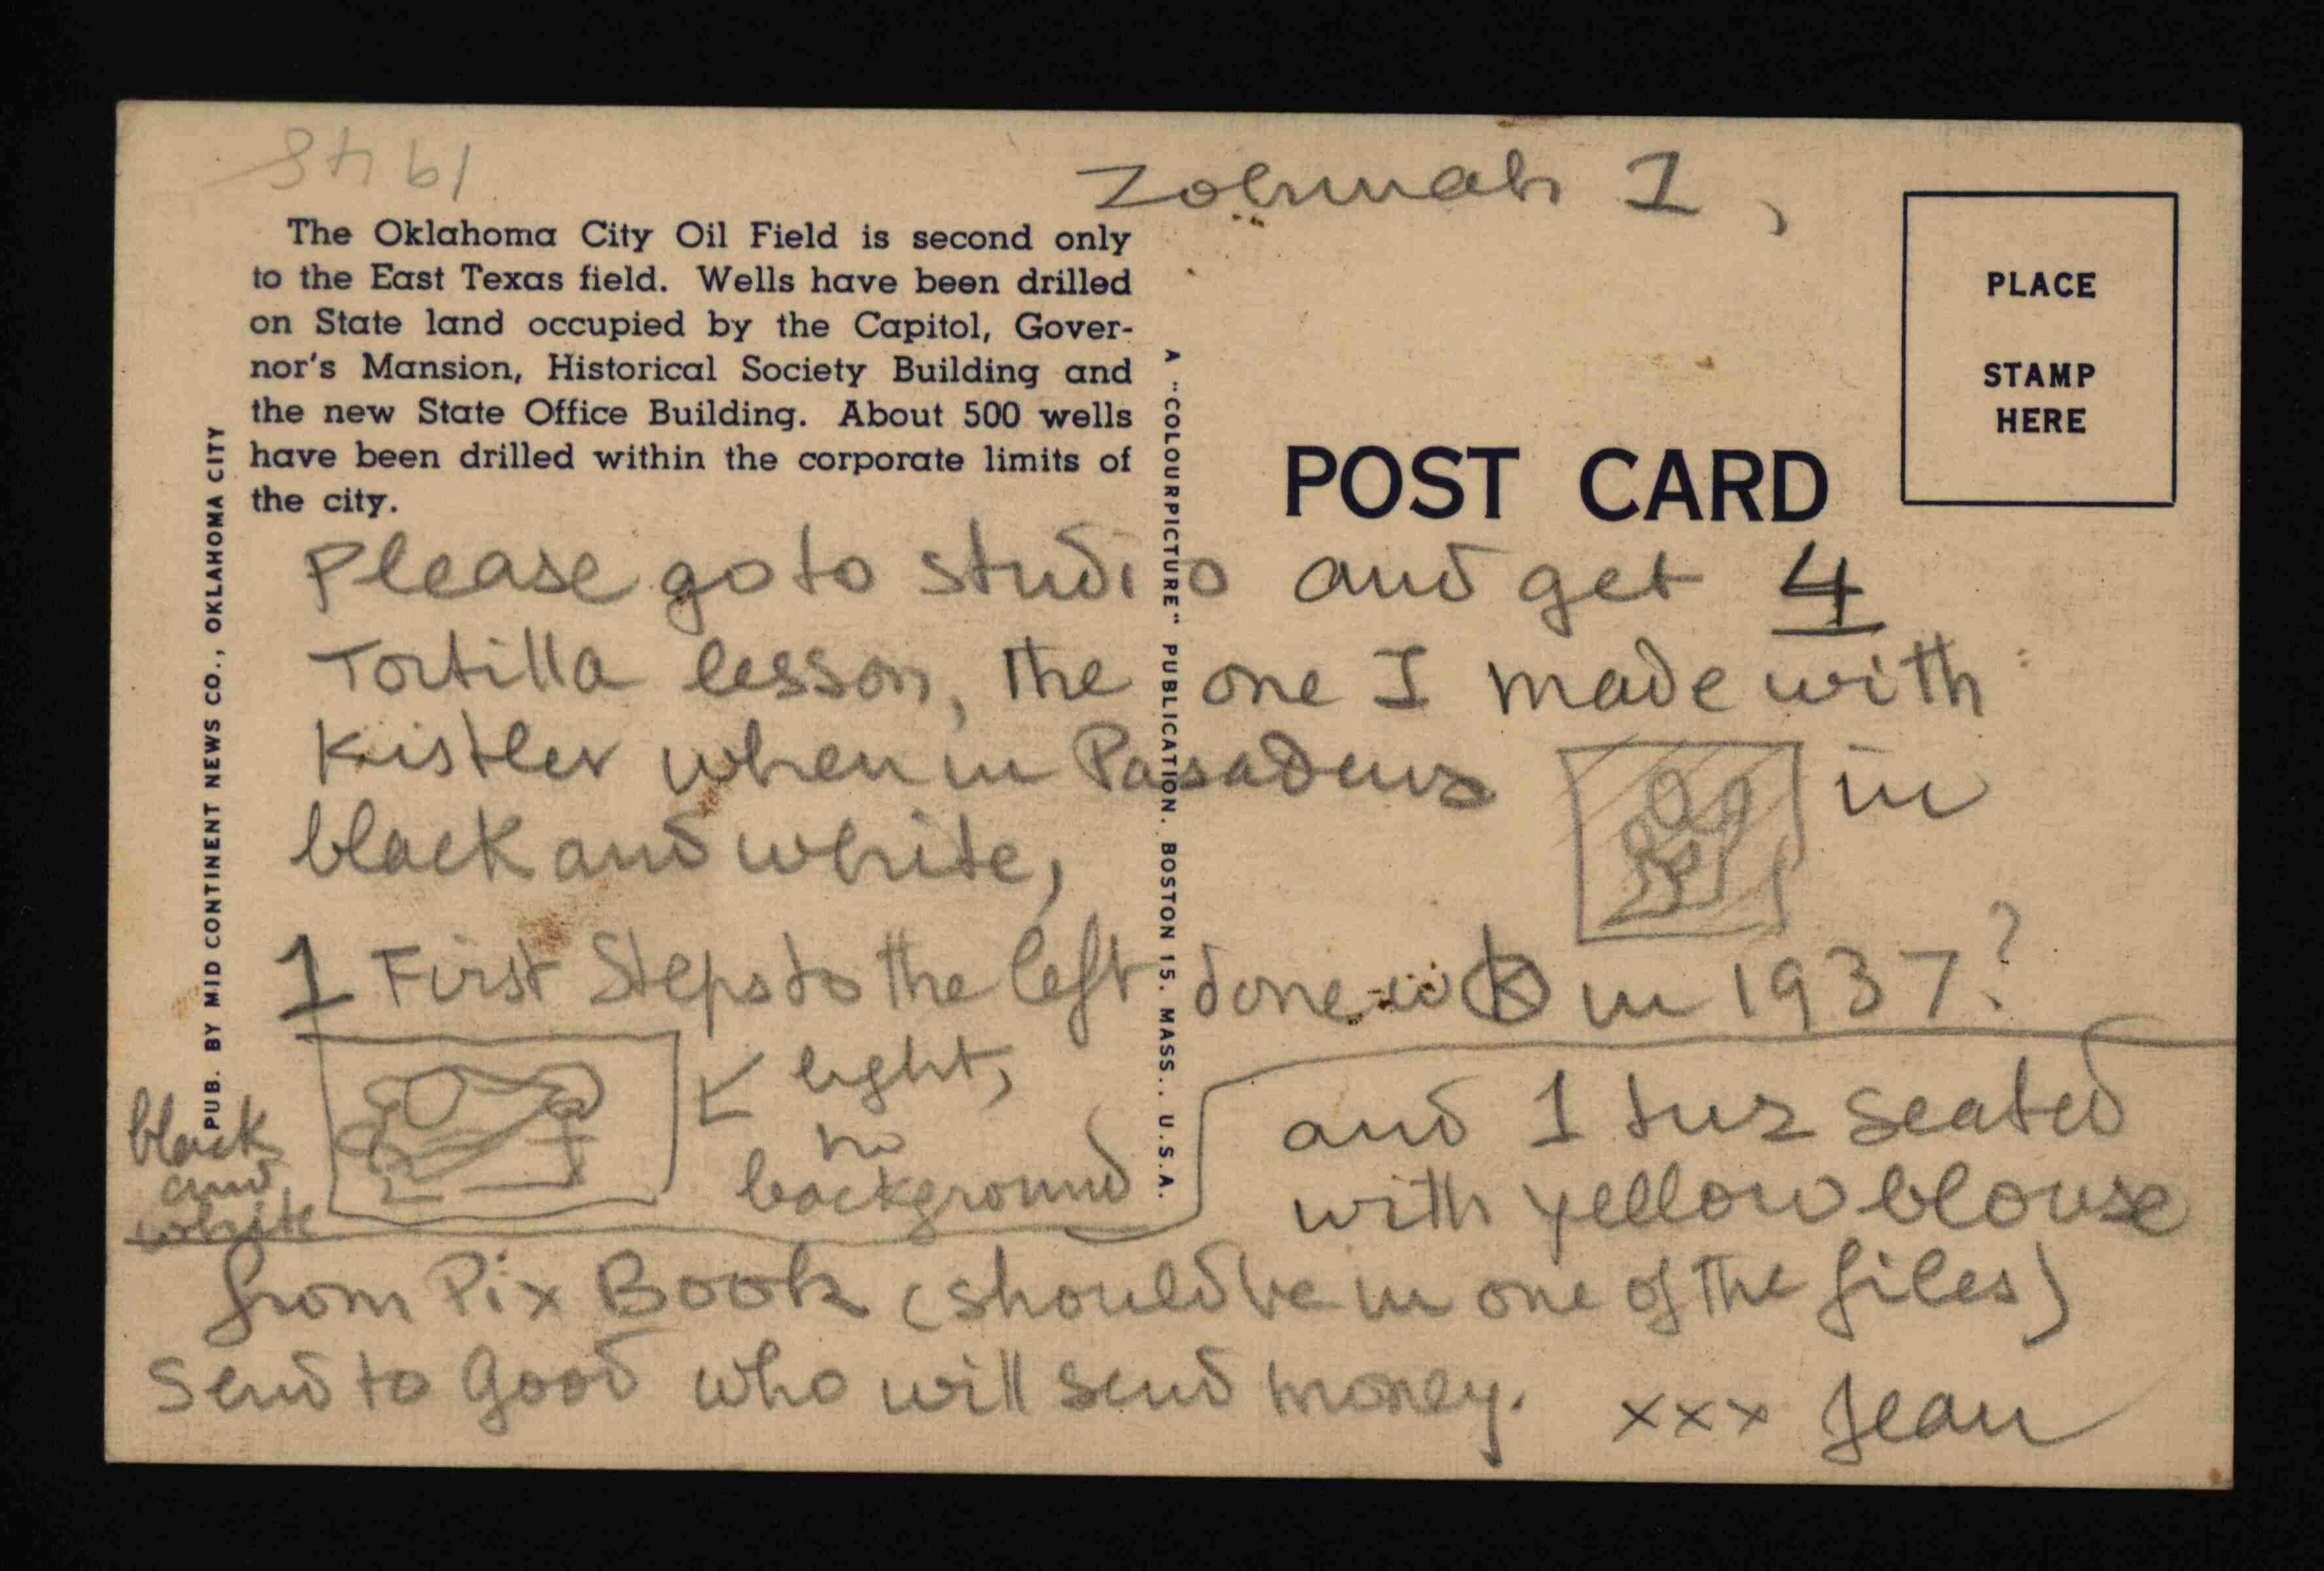 1948
Zohmah 1,
The Oklahoma City Oil Field is second only
to the East Texas field. Wells have been drilled
on State land occupied by the Capitol, Gover-
nor's Mansion, Historical Society Building and
the new State Office Building. About 500 wells
have been drilled within the corporate limits of
the city.
PUB. BY MID CONTINENT NEWS CO., OKLAHOMA CITY
A "COLOURPICTURE" PUBLICATION. BOSTON 15. MASS., U.S.A.
PLACE
STAMP
HERE
POST CARD
Please go to studio and get 4
Tortilla lesson, the one I made with
Kistler when in Pasadena in
black and white,
1 First Steps to the left done w K in 1937?
light,
no
background
black
and
white
and 1 Luz seated
with yellow blouse
from Pix Book (should be in one of the files)
Send to Good who will send money. xxx Jean